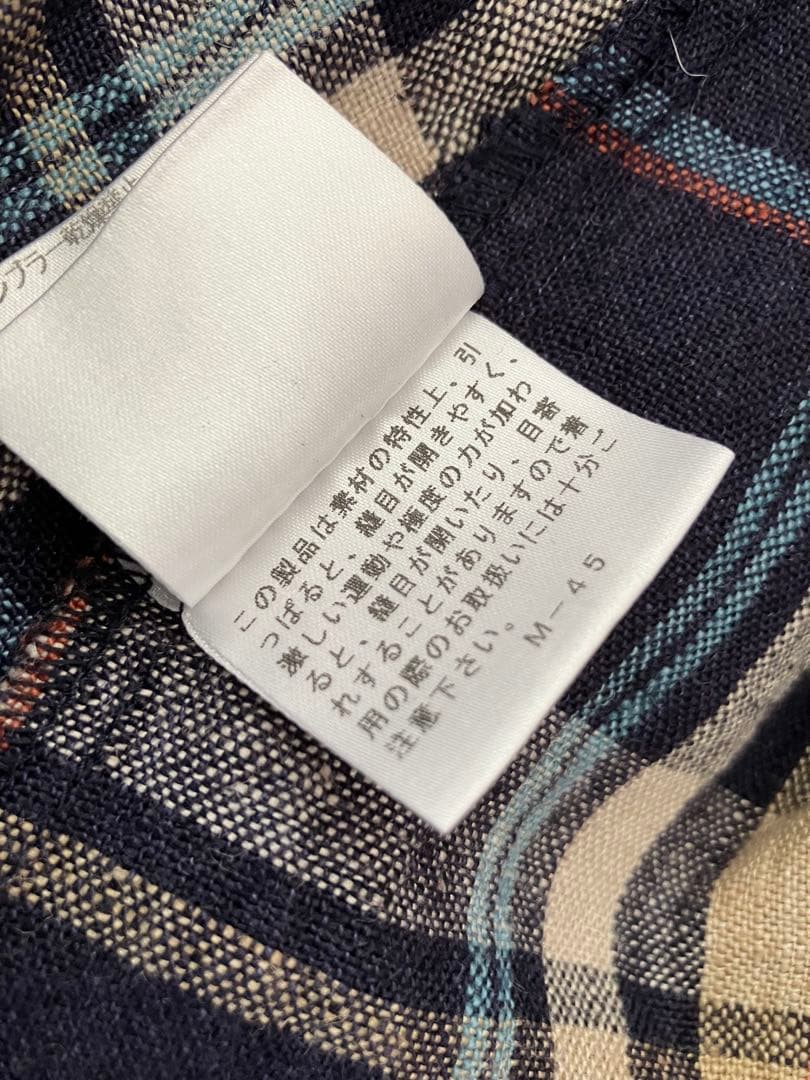 ンブラー乾燥禁止
この製品は素材の特性上、引
っぱると、縫目が開きやすく、
激しい運動や極度の力が加わ
ると、縫目が開いたり、目寄
れすることがありますので着
用の際のお取扱いには十分ご
注意下さい。
M－45